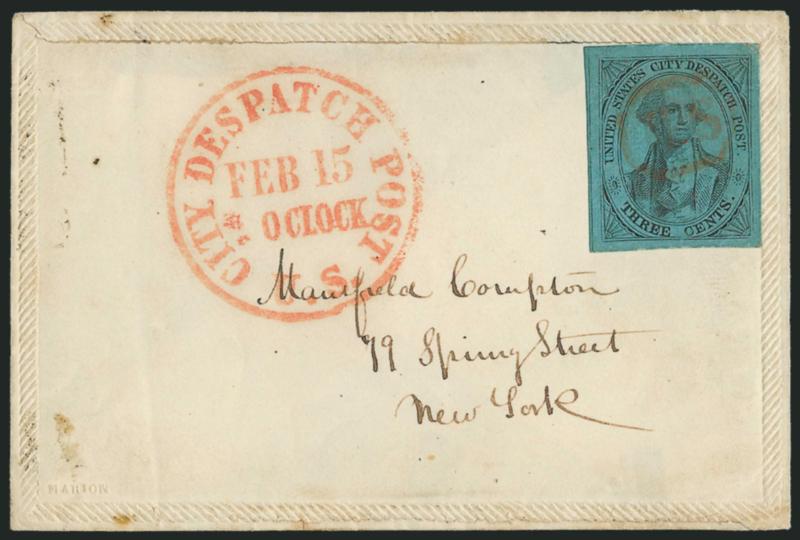 CITY DESPATCH POST
FEB 15
O'CLOCK
U.S.
UNITED STATES CITY DESPATCH POST.
THREE CENTS.
Mansfield Compton
79 Spring Street
New York
MARION